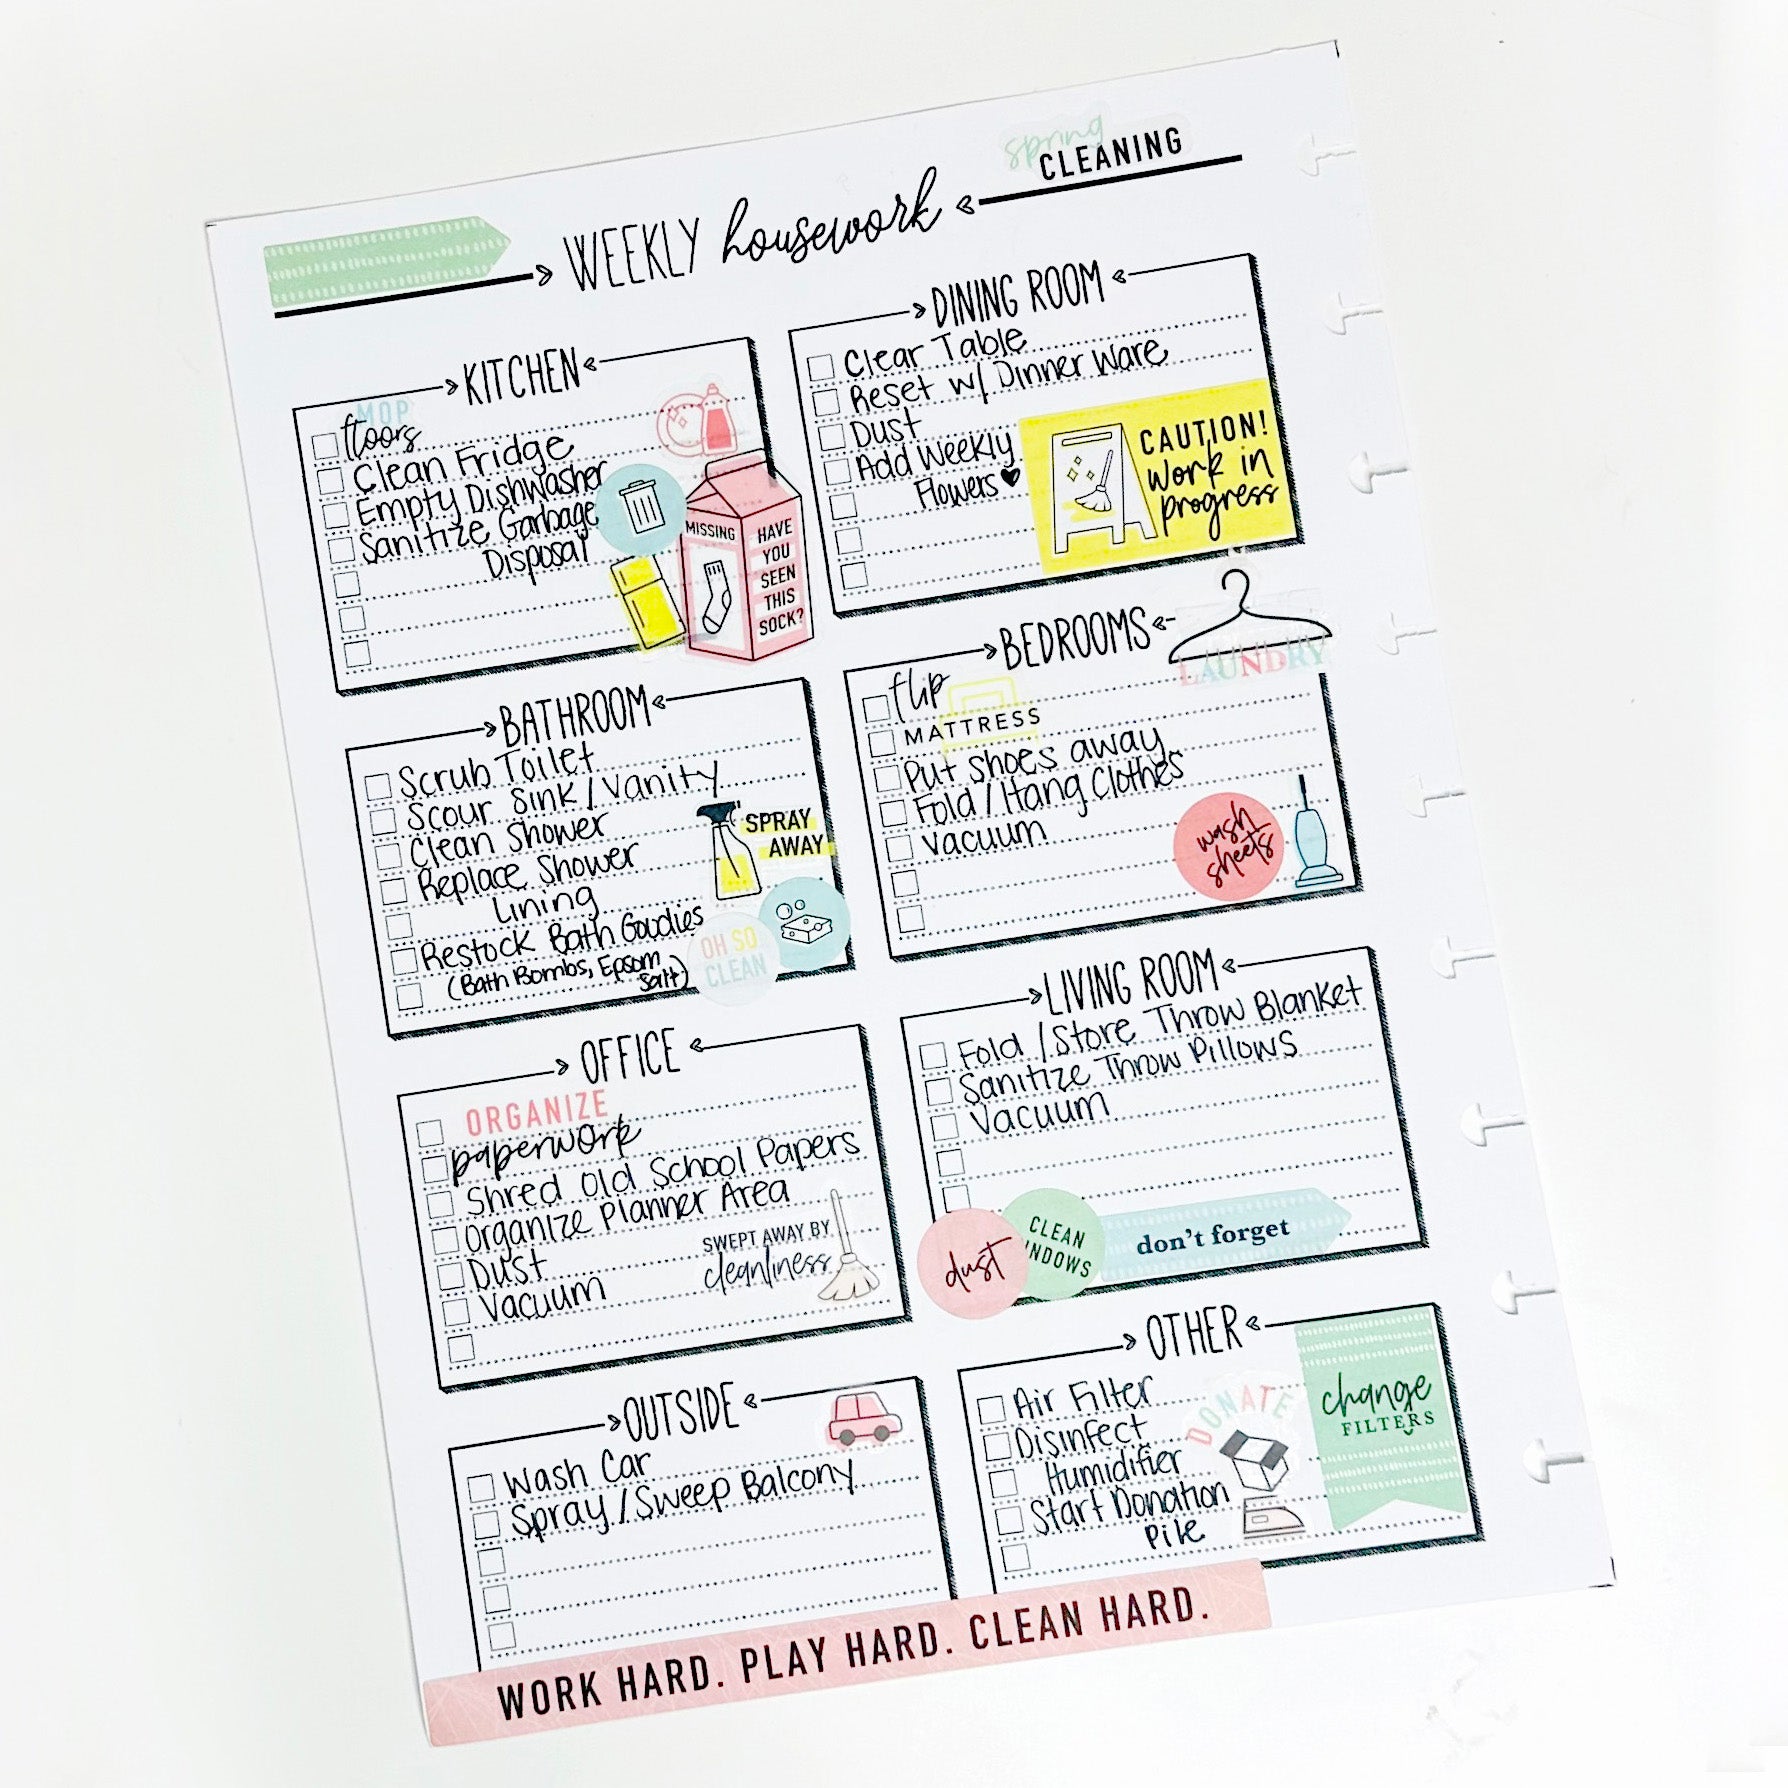 spring
CLEANING
WEEKLY housework
KITCHEN
MOP
floors
Clean Fridge
Empty Dishwasher
Sanitize Garbage
Disposal
MISSING
HAVE
YOU
SEEN
THIS
SOCK?
DINING ROOM
Clear Table
Reset w/ Dinner Ware
Dust
Add Weekly
Flowers
CAUTION!
Work in
progress
BATHROOM
Scrub Toilet
Scour Sink / Vanity
Clean Shower
Replace Shower
Lining
Restock Bath Goodies
(Bath Bombs, Epsom
Salt)
SPRAY
AWAY
OH SO
CLEAN
BEDROOMS
LAUNDRY
flip
MATTRESS
Put shoes away
Fold / Hang Clothes
Vacuum
wash
sheets
OFFICE
ORGANIZE
paperwork
Shred Old School Papers
Organize Planner Area
Dust
Vacuum
SWEPT AWAY BY
cleanliness
LIVING ROOM
Fold / Store Throw Blanket
Sanitize Throw Pillows
Vacuum
dust
CLEAN
INDOWS
don't forget
OUTSIDE
Wash Car
Spray / Sweep Balcony
OTHER
Air Filter
Disinfect
Humidifier
Start Donation
Pile
DONATE
change
FILTERS
WORK HARD. PLAY HARD. CLEAN HARD.